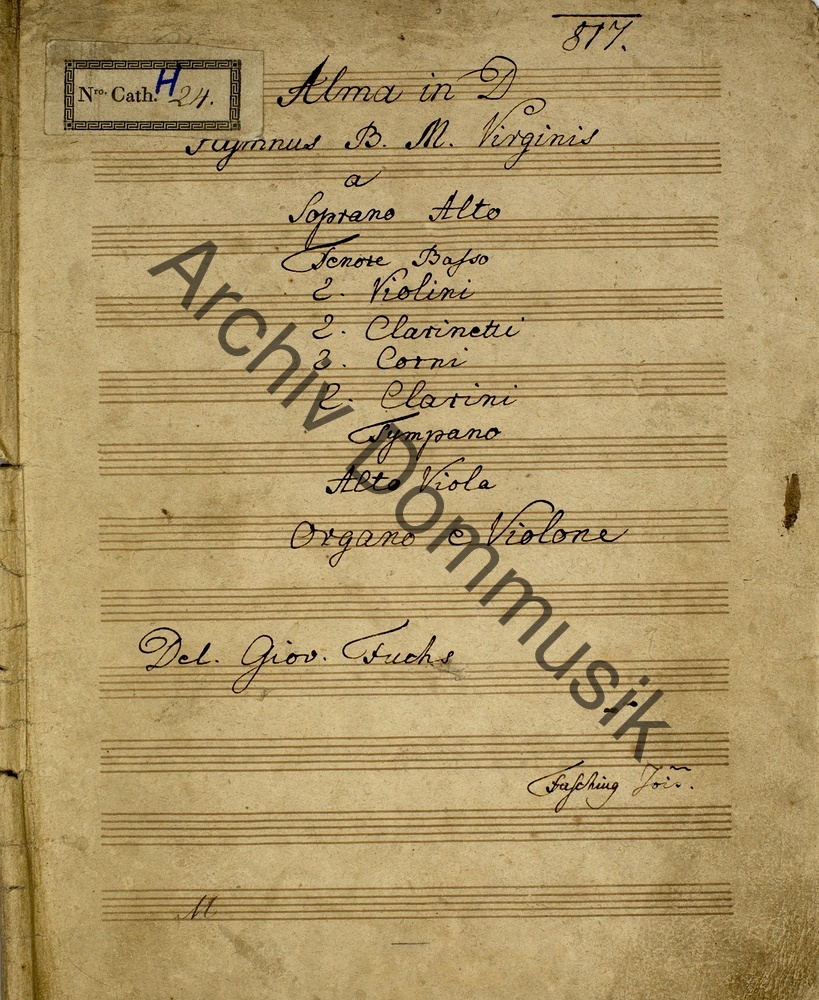 817.
Nro. Cath. H 24.
Alma in D
Hymnus B. M. Virginis
a
Soprano Alto
Tenore Basso
2. Violini
2. Clarinetti
2. Corni
2. Clarini
Tympano
Alto Viola
Organo e Violone
Del. Giov. Fuchs
Fasching Jois.
M
Archiv Dommusik